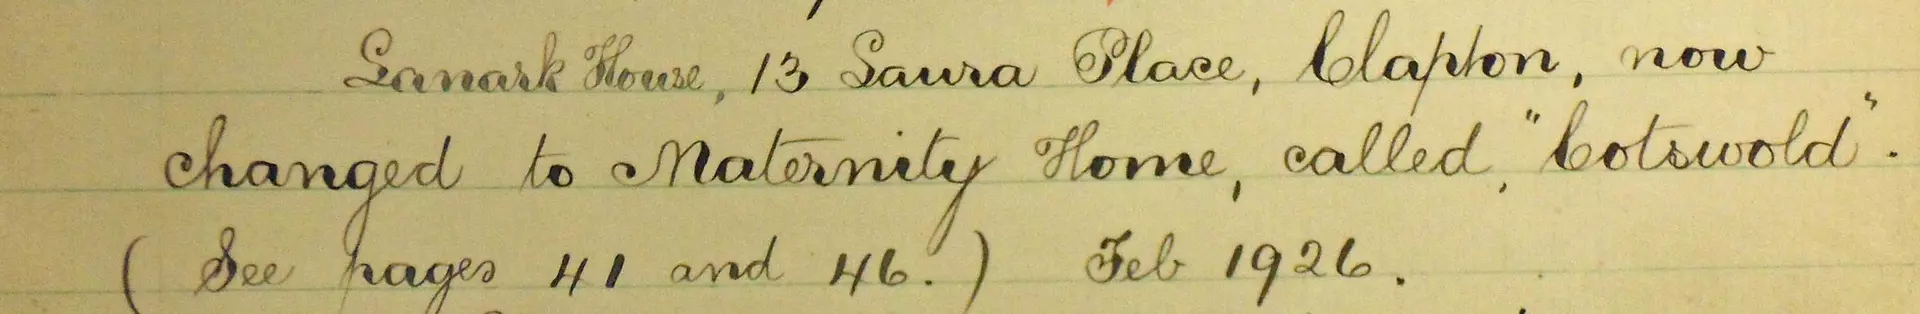 Lanark House, 13 Laura Place, Clapton, now
changed to Maternity Home, called, "Cotswold".
(See pages 41 and 46.) Feb 1926.